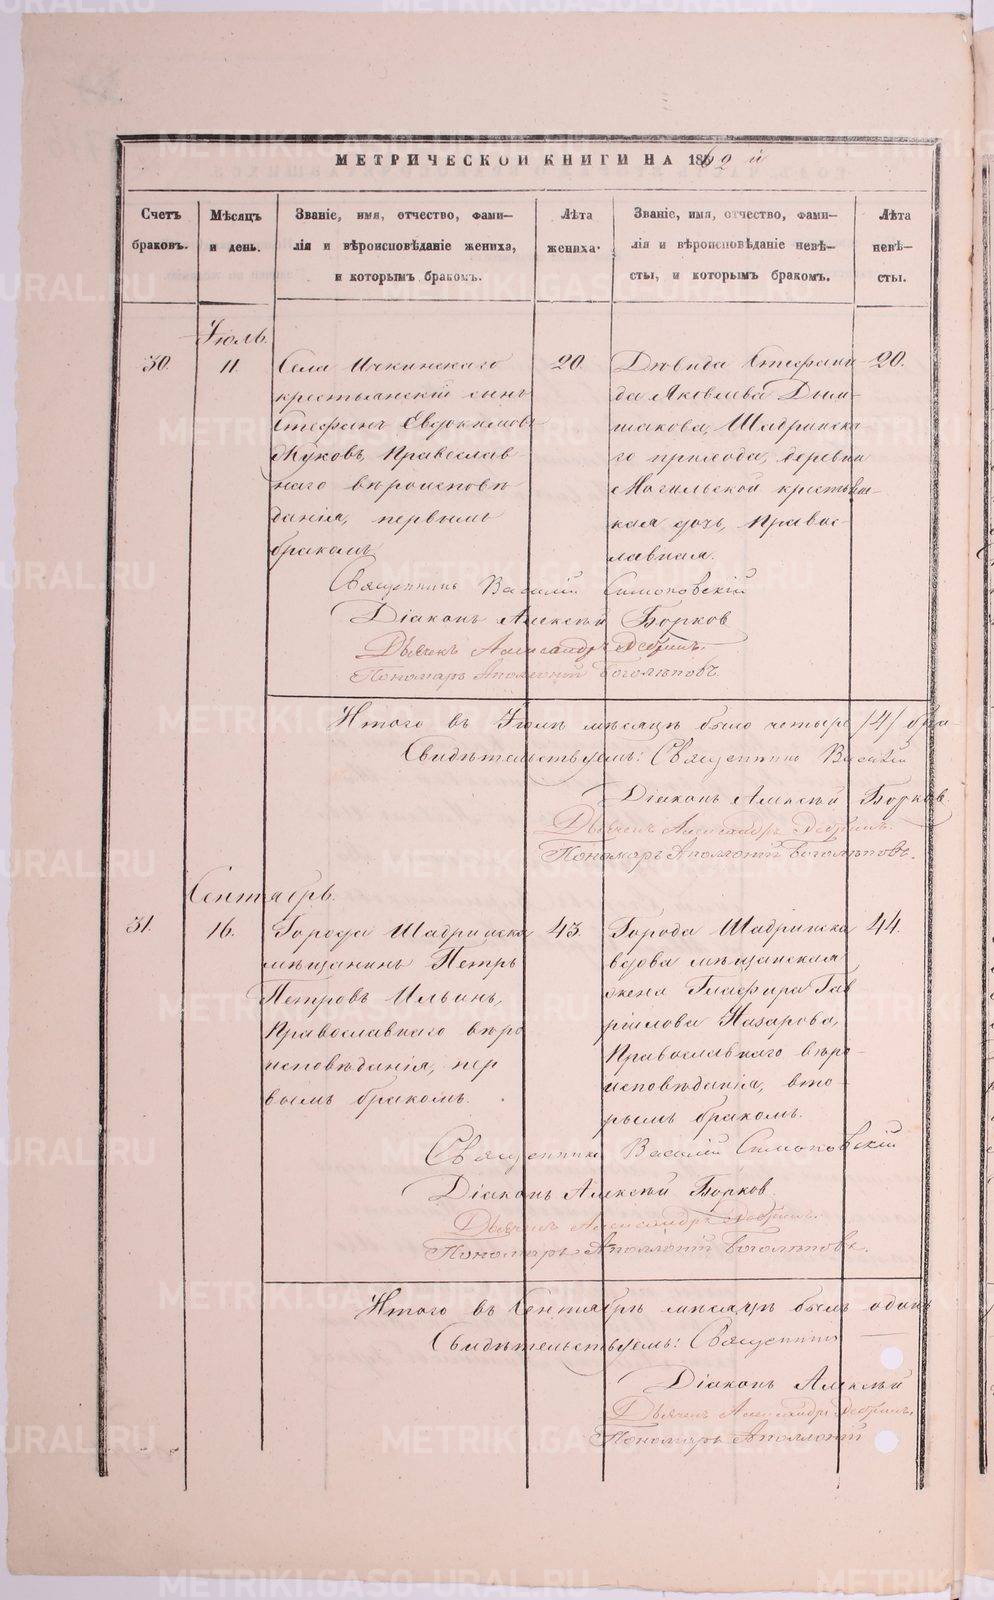 МЕТРИЧЕСКОЙ КНИГИ НА 1862 й
Счетъ браковъ.
Мѣсяцъ и день.
Званіе, имя, отчество, фами-
лія и вѣроисповѣданіе жениха,
и которымъ бракомъ.
Лѣта жениха.
Званіе, имя, отчество, фами-
лія и вѣроисповѣданіе невѣ-
сты, и которымъ бракомъ.
Лѣта невѣ-
сты.
Іюль.
30.
11.
Села Ичкинскаго
крестьянскій сынъ
Стефанъ Евдокимовъ
Жуковъ, Православ-
наго вѣроисповѣ
данія, первымъ
бракомъ
20.
Дѣвица Степани
да Яковлева Дым-
шакова, Шадринска
го прихода, деревни
Могильской крестьян-
кая дочь, Правос-
лавная.
20.
Священникъ Василій Симоновскій
Діаконъ Алексѣй Борков
Дьячекъ Александръ
Пономарь Аполлоній Боголѣповъ.
Итого въ Іюлѣ мѣсяцѣ было четыре /4/ бра-
Свидѣтельствуемъ: Священникъ Василій
Діаконъ Алексѣй Борков.
Дьячекъ Александръ
Пономарь Аполлоній Боголѣповъ.
Сентябрь.
31.
16.
Города Шадринска
мѣщанинъ Петръ
Петровъ Ильинъ,
Православнаго вѣро
исповѣданія, пер
вымъ бракомъ.
43.
Города Шадринска
вдова мѣщанская
жена Глафира Гав
ріилова Назарова,
Православнаго вѣро-
исповѣданія, вто-
рымъ бракомъ.
44.
Священникъ Василій Симоновскій
Діаконъ Алексѣй Борков
Дьячекъ Александръ
Пономарь Аполлоній Боголѣповъ.
Итого въ Сентябрѣ мѣсяцѣ былъ одинъ
Свидѣтельствуемъ: Священникъ
Діаконъ Алексѣй
Дьячекъ Александръ
Пономарь Аполлоній
METRIKI.GASO-URAL.RU